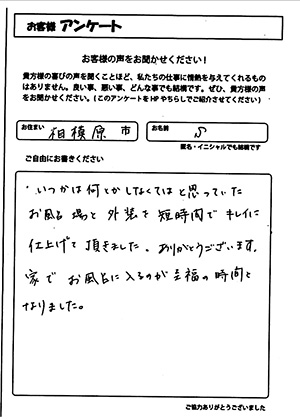 お客様 アンケート
お客様の声をお聞かせください！
貴方様の喜びの声を聞くことほど、私たちの仕事に情熱を与えてくれるもの
はありません。良い事、悪い事、どんな事でも結構です。ぜひ、貴方様の声
をお聞かせください。(このアンケートをHPやちらしでご紹介させてください)
お住まい 相模原 市 お名前
匿名・イニシャルでも結構です
ご自由にお書きください
・いつかは何とかしなくてはと思っていた
お風呂場と外装を短時間でキレイに
仕上げて頂きました。ありがとうございます。
家でお風呂に入るのが至福の時間と
なりました。
ご協力ありがとうございました